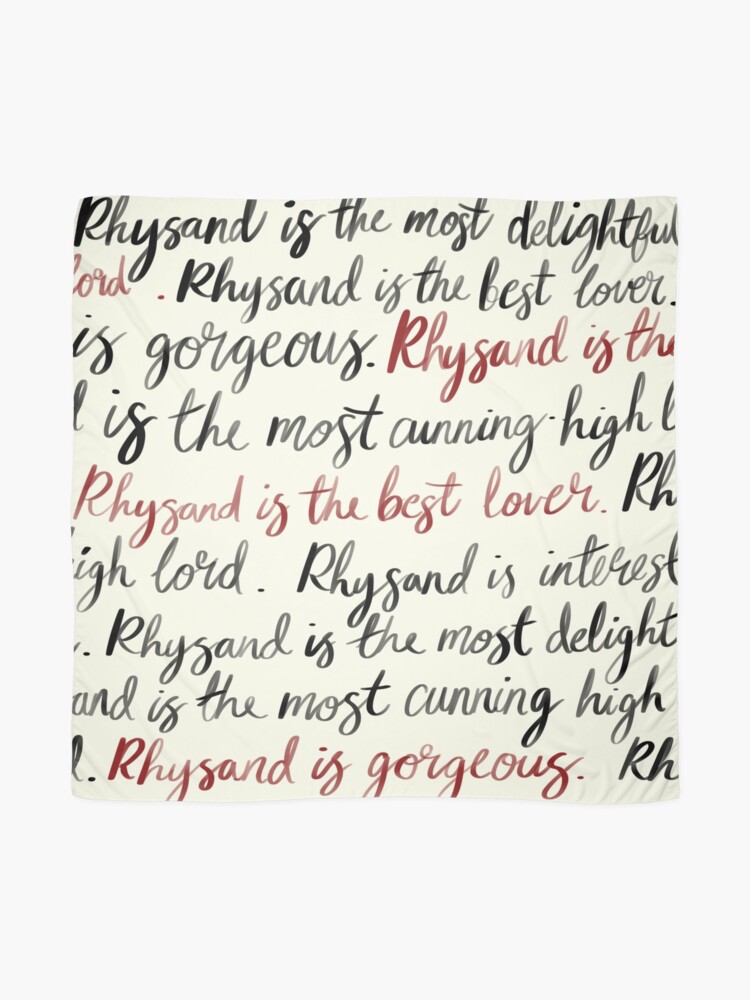 Rhysand is the most delightful
lord. Rhysand is the best lover.
is gorgeous. Rhysand is the
is the most cunning high l
Rhysand is the best lover. Rh
igh lord. Rhysand is interest
. Rhysand is the most delight
and is the most cunning high
. Rhysand is gorgeous. Rh